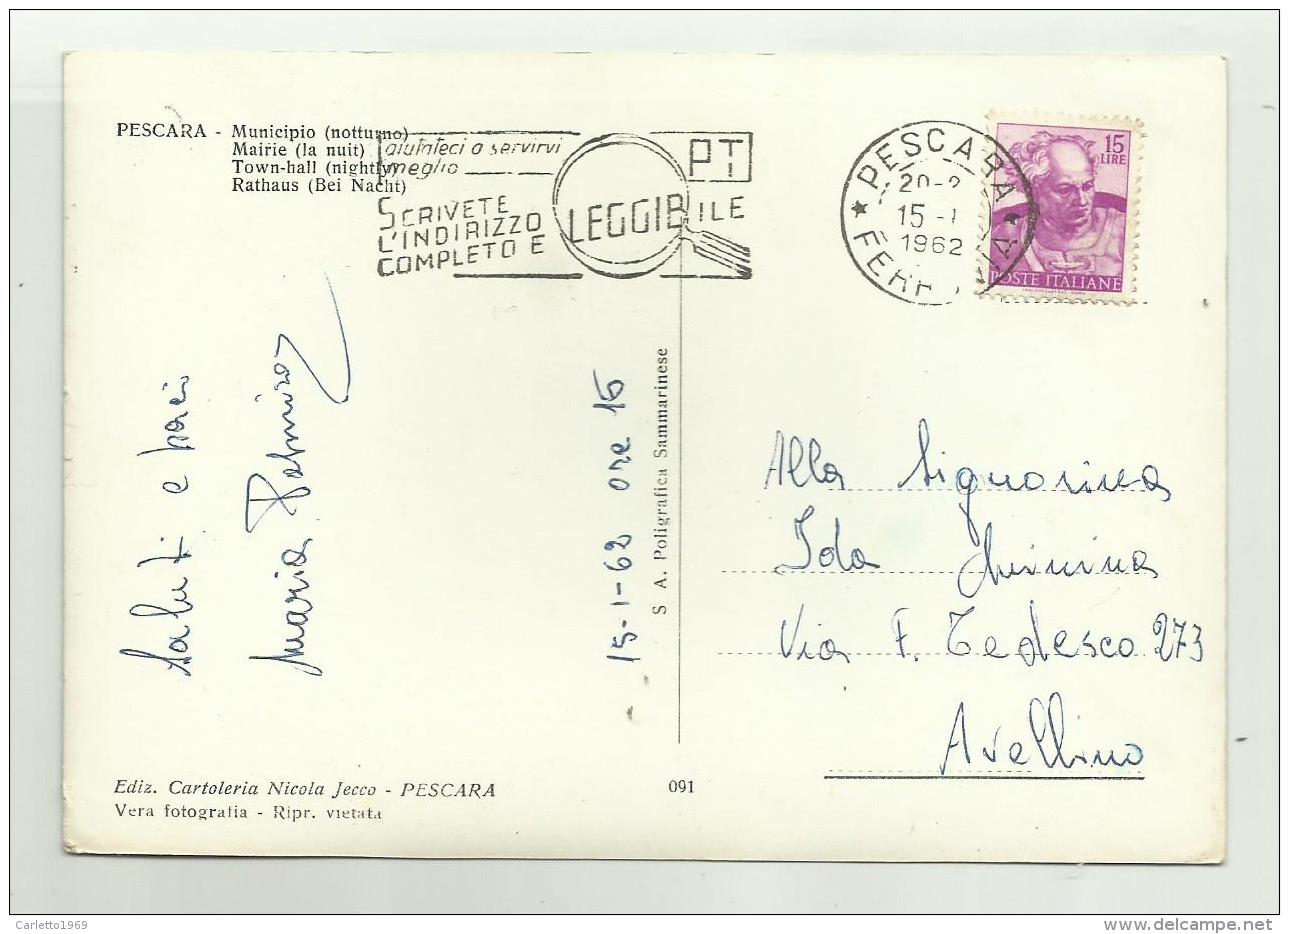 PESCARA - Municipio (notturno)
Mairie (la nuit)
Town-hall (nightly)
Rathaus (Bei Nacht)
aiutateci a servirvi
meglio
SCRIVETE
L'INDIRIZZO
COMPLETO E LEGGIBILE
PT
PESCARA
20-2
15-1
1962
FERROVIA
15
LIRE
POSTE ITALIANE
Saluti e baci
Maria
15-1-62 ore 16
S. A. Poligrafica Sammarinese
Alla Signorina
Ida
Via F. Tedesco 273
Avellino
Ediz. Cartoleria Nicola Jecco - PESCARA
091
Vera fotografia - Ripr. vietata
Carletto1969
www.delcampe.net